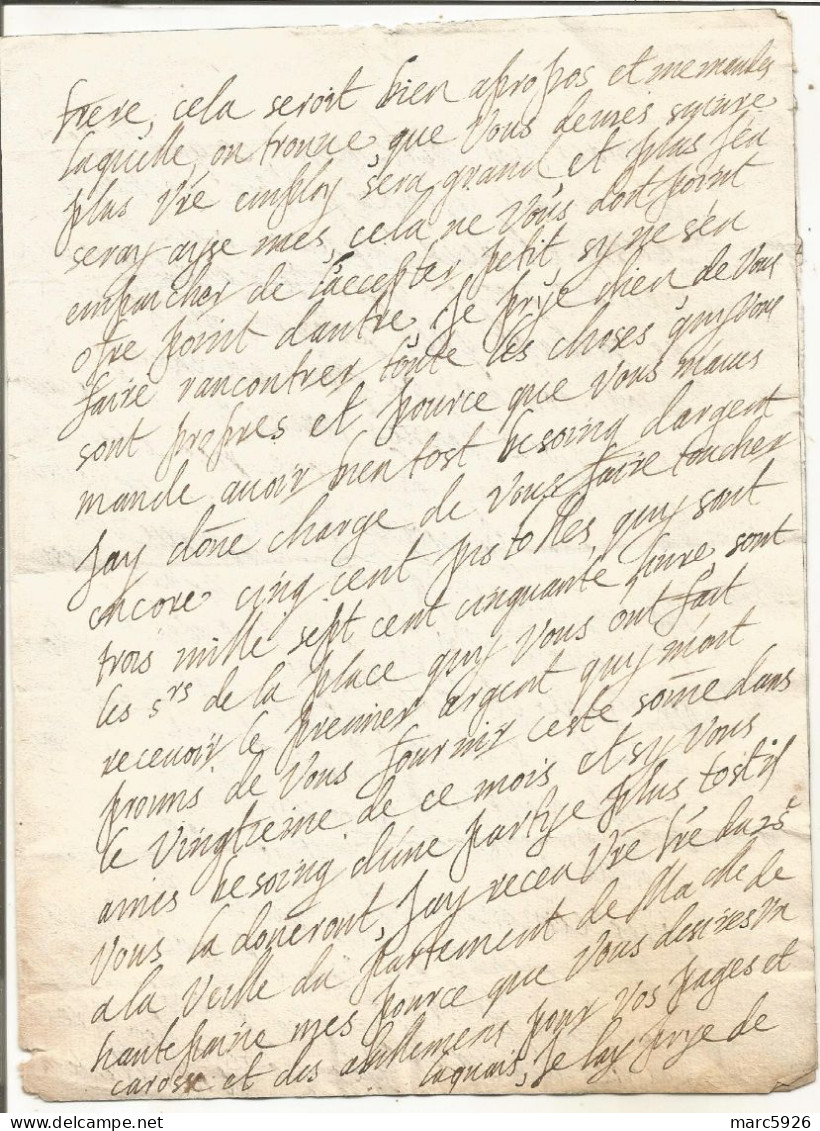 frere, cela seroit bien apropos et me mandes
laquelle, on trouue que Vous deues suiure
plus Vre employ sera grand et plus jen
seray ayse mes, cela ne Vous doit point
enpaicher de laccepter petit, sy ne sen
ofre point dautre, Je prye dieu de Vous
faire rancontrer toute les choses quy Vous
sont propres et pource que Vous maues
mande auoir bien tost besoing dargent
Jay doñe charge de Vous faire toucher
encore cinq cent pistolles, quy sont
trois mille sept cent cinquante liure, sont
les srs de la place quy Vous ont fait
receuoir le premier argent quy mont
proumis de Vous fournir ceste some dans
le Vingtieme de ce mois et sy Vous
aviés besoing dune partye plus tost il
Vous la doneront, Jay receu Vre lre du 25e
a la Veille du partement de Madlle de
hautepaine mes pource que Vous desires Un
carosse et des abillemens pour Vos pages et
laquais, Je lay prye de
marc5926